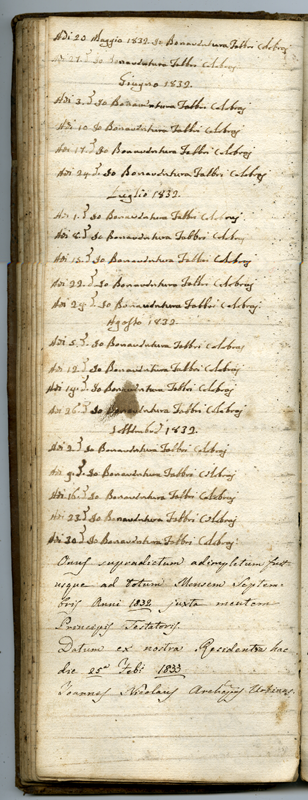 Adì 20 Maggio 1832. Io Bonaventura Fabbri Celebraj
Adì 27. d.º Io Bonaventura Fabbri Celebraj
Giugno 1832.
Adì 3. d.º Io Bonaventura Fabbri Celebraj
Adì 10. d.º Io Bonaventura Fabbri Celebraj
Adì 17. d.º Io Bonaventura Fabbri Celebraj
Adì 24. d.º Io Bonaventura Fabbri Celebraj
Luglio 1832.
Adì 1. d.º Io Bonaventura Fabbri Celebraj
Adì 8. d.º Io Bonaventura Fabbri Celebraj
Adì 15. d.º Io Bonaventura Fabbri Celebraj
Adì 22. d.º Io Bonaventura Fabbri Celebraj
Adì 29. d.º Io Bonaventura Fabbri Celebraj
Agosto 1832.
Adì 5. d.º Io Bonaventura Fabbri Celebraj
Adì 12. d.º Io Bonaventura Fabbri Celebraj
Adì 19. d.º Io Bonaventura Fabbri Celebraj
Adì 26. d.º Io Bonaventura Fabbri Celebraj
Settembre 1832.
Adì 2. d.º Io Bonaventura Fabbri Celebraj
Adì 9. d.º Io Bonaventura Fabbri Celebraj
Adì 16. d.º Io Bonaventura Fabbri Celebraj
Adì 23. d.º Io Bonaventura Fabbri Celebraj
Adì 30. d.º Io Bonaventura Fabbri Celebraj
Onus supradictum adimpletum fuit
usque ad totum Mensem Septem-
bris Anni 1832 juxta mentem
Principis Testatoris.
Datum ex nostra Residentia hac
die 25ª Feb: 1833
Joannes Nicolaus Archip̄us